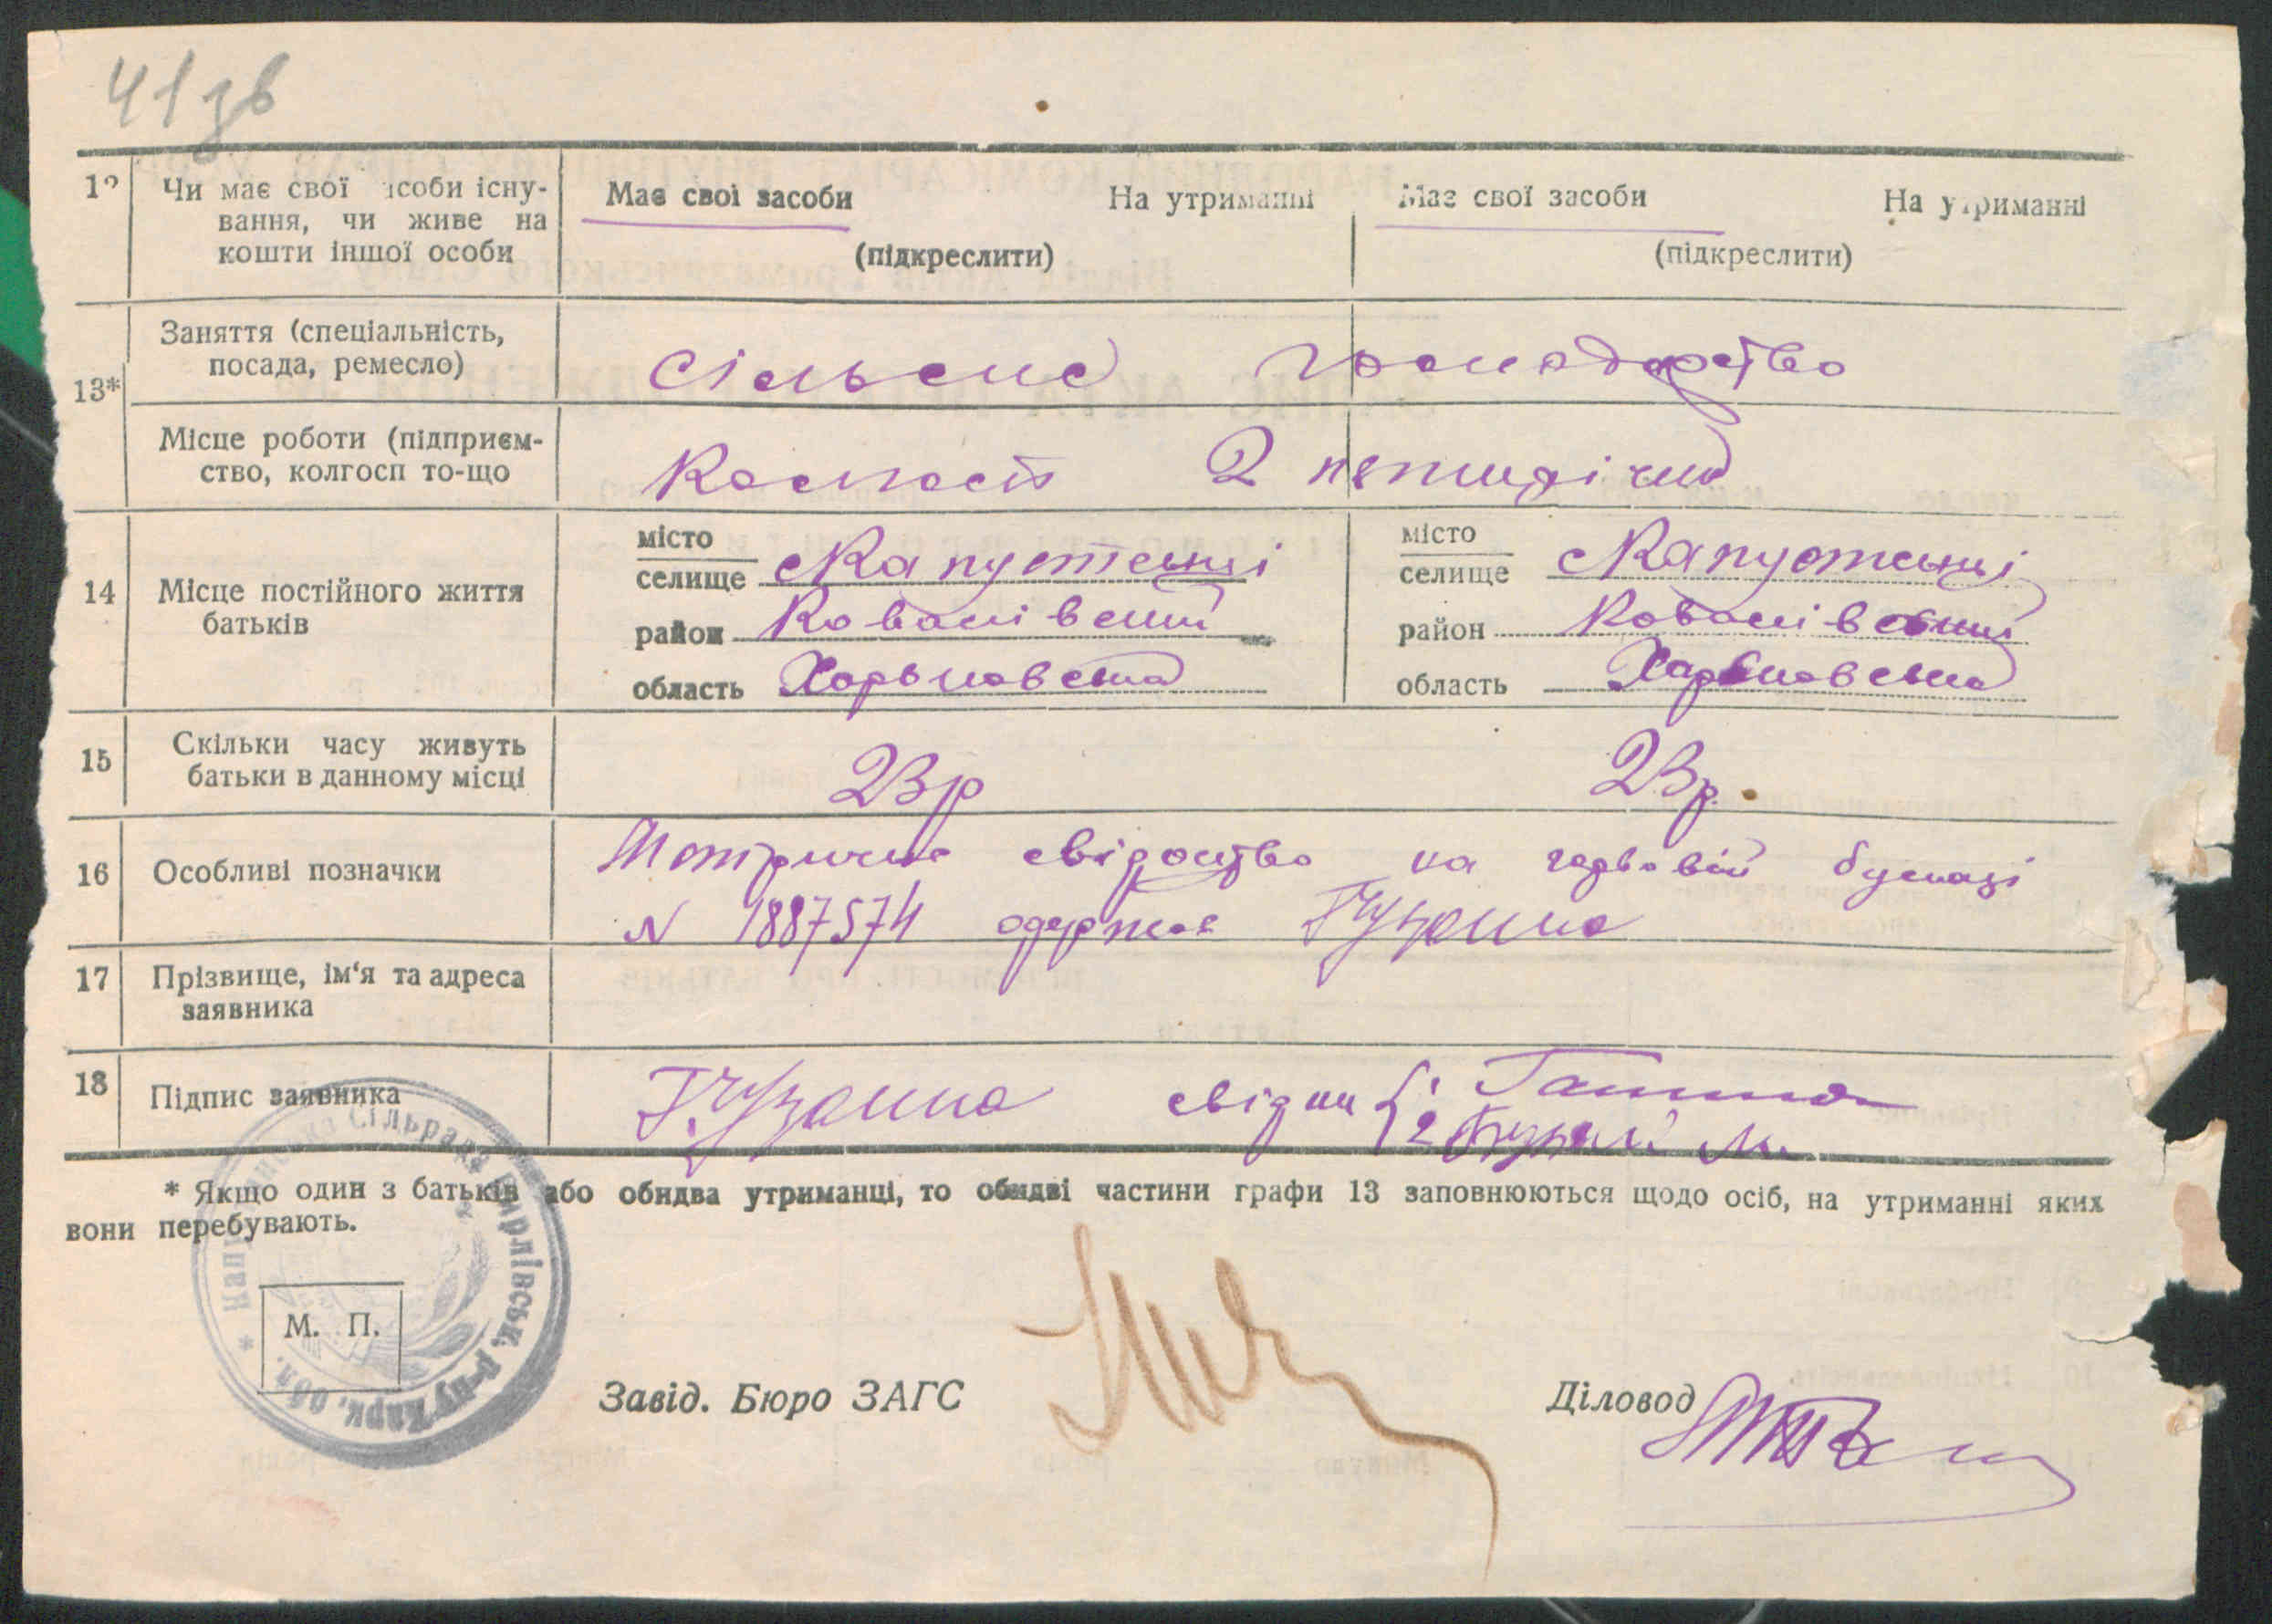 41зв
12 Чи має свої засоби існу- Має свої засоби На утриманні Має свої засоби На утриманні
вання, чи живе на
кошти іншої особи (підкреслити) (підкреслити)
Заняття (спеціальність,
посада, ремесло) сільське господарство
13*
Місце роботи (підприєм-
ство, колгосп то-що Колгосп 2 пятирічка
місто місто
селище с Капустенці селище с Капустенці
14 Місце постійного життя
батьків
район район
область Харьковська область Харьковська
15 Скільки часу живуть
батьки в данному місці 23р 23р.
Метричне свідоцтво на гербовій бумазі
16 Особливі позначки
N 1887574 одержав
17 Прізвище, ім'я та адреса
заявника
18 Підпис заявника свідки 1 2
* Якщо один з батьків або обидва утриманці, то обидві частини графи 13 заповнюються щодо осіб, на утриманні яких
вони перебувають.
Сільрада Пирлівськ. р-ну Харк. обл.
М. П.
Завід. Бюро ЗАГС Діловод